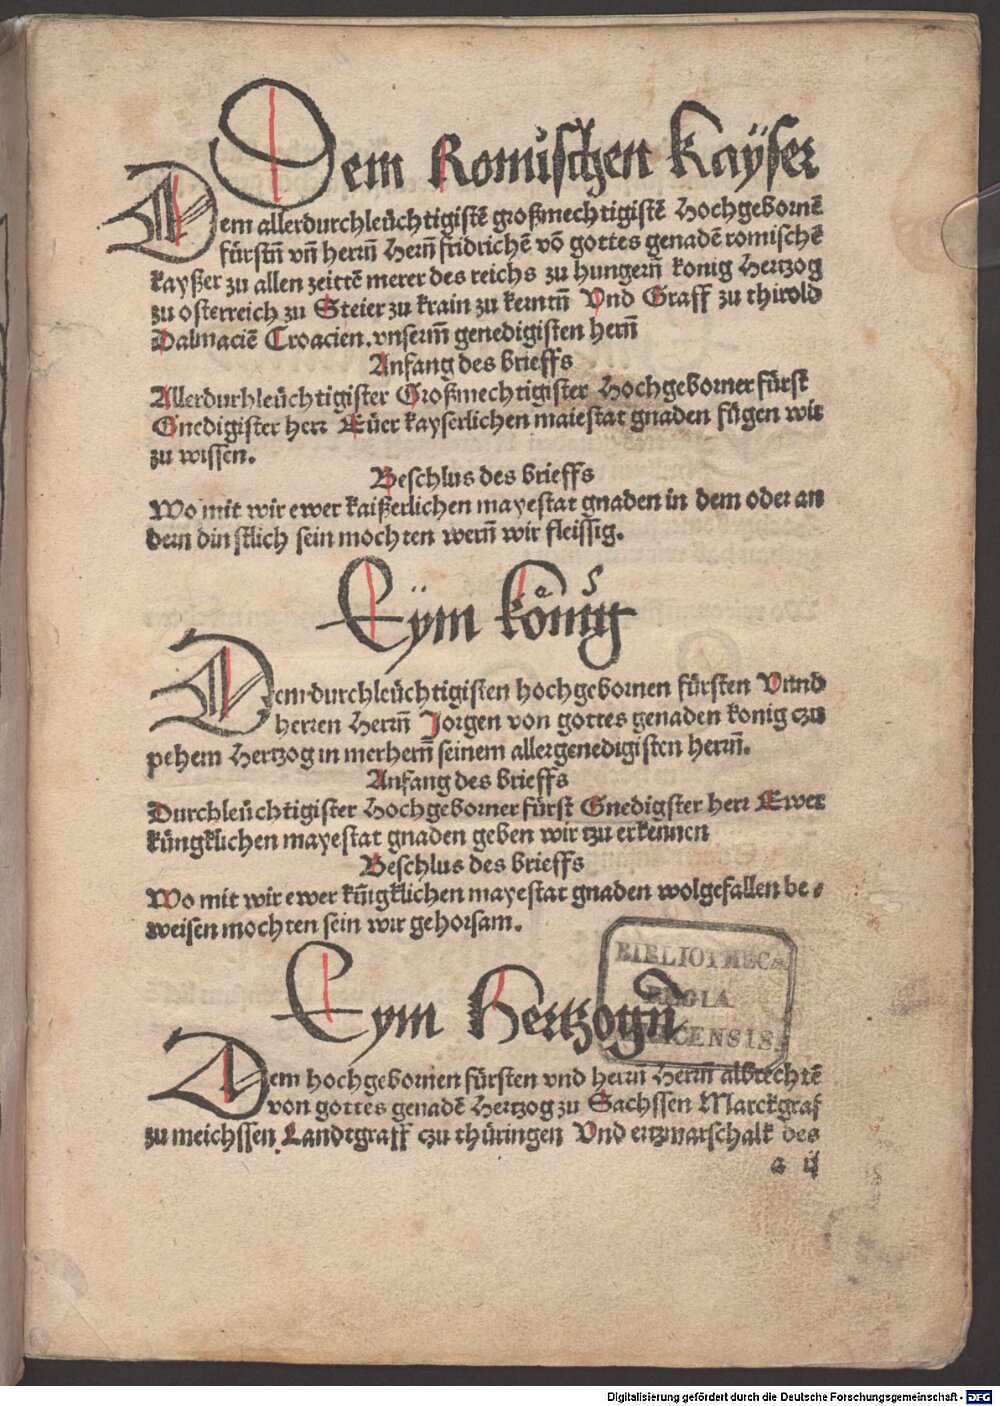 Dem Romischen Kaÿser
Dem allerdurchleüchtigistē großmechtigistē Hochgebornē
fürstn̄ vn̄ herrn̄ Hern̄ fridrichē vō gottes genadē romischē
kayßer zu allen zeittē merer des reichs zu hungern̄ konig Hertzog
zu osterreich zu Steier zu krain zu kerntn̄ Vnd Graff zu thirold
Dalmaciē Croacien. vnserm̄ genedigisten hern̄
Anfang des brieffs
Allerdurhleüchtigister Großmechtigister Hochgeborner fürst
Gnedigister herr Eüer kayserlichen maiestat gnaden fügen wir
zu wissen.
Beschlus des brieffs
Wo mit wir ewer kaißerlichen mayestat gnaden in dem oder an
dern dinstlich sein mochten wern̄ wir fleissig.
Eÿm koͤnig
Dem durchleüchtigisten hochgebornen fürsten Vnnd
herren Herrn̄ Jorgen von gottes genaden konig czu
pehem Hertzog in merhern̄ seinem allergenedigisten herrn̄.
Anfang des brieffs
Durchleüchtigister Hochgeborner fürst Gnedigster herr Ewer
küngklichen mayestat gnaden geben wir tzu erkennen
Beschlus des brieffs
Wo mit wir ewer kn̄igklichen mayestat gnaden wolgefallen be⸗
weisen mochten sein wir gehorsam.
Eym Hertzogn̄
Dem hochgebornen fürsten vnd herrn̄ Herrn̄ albrechtē
von gottes genadē Hertzog zu Sachssen Marckgraf
zu meichssen Landtgraff czu thüringen Vnd ertzmarschalk des
a ij
BIBLIOTHECA
REGIA
MONACENSIS.
Digitalisierung gefördert durch die Deutsche Forschungsgemeinschaft - DFG